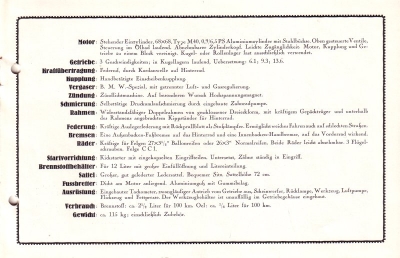 Motor: Stehender Einzylinder, 68×68, Type M 40, 0,9/6,5 PS Aluminiumzylinder mit Stahlbüchse. Oben gesteuerte Ventile,
Steuerung im Ölbad laufend. Abnehmbarer Zylinderkopf. Leichte Zugänglichkeit. Motor, Kupplung und Ge-
triebe zu einem Block vereinigt. Kugel- oder Rollenlager fast ausschließlich verwendet.
Getriebe: 3 Geschwindigkeiten; in Kugellagern laufend. Uebersetzung: 6.1; 9.3; 13.6.
Kraftübertragung: Federnd, durch Kardanwelle auf Hinterrad.
Kupplung: Handbetätigte Einscheibenkupplung
Vergaser: B. M. W.-Spezial, mit getrennter Luft- und Gasregulierung.
Zündung: Zündlichtmaschine. Auf besonderen Wunsch Hochspannungsmagnet.
Schmierung: Selbsttätige Druckumlaufschmierung durch eingebaute Zahnradpumpe.
Rahmen: Widerstandsfähiger Doppelrahmen von geschlossener Dreiecksform, mit kräftigem Gepäckträger und unterhalb
des Rahmens angebrachtem Kippständer für Hinterrad.
Federung: Kräftige Auslegerfederung mit Rückprallblatt als Stoßdämpfer. Ermöglicht weiches Fahren auch auf schlechten Straßen.
Bremsen: Eine Außenbacken-Fußbremse auf das Hinterrad und eine Innenbacken-Handbremse, auf das Vorderrad wirkend.
Räder: Kräftige für Felgen 27×3½" Ballonreifen oder 26×3" Normalreifen. Beide Räder leicht abnehmbar. 3 Flügel-
schrauben. Felge C C 1.
Startvorrichtung: Kickstarter mit eingekapselten Eingriffteilen. Untersetzt, Zähne ständig in Eingriff.
Brennstoffbehälter: Für 12 Liter mit großer Einfüllöffnung und Litereinteilung.
Sattel: Großer, gut gefederter Ledersattel. Bequemer Sitz. Sattelhöhe 72 cm.
Fussbretter: Dicht am Motor anliegend. Aluminiumguß mit Gummibelag.
Ausrüstung: Eingebauter Tachometer, zwangläufiger Antrieb vom Getriebe aus, Scheinwerfer, Rücklampe, Werkzeug, Luftpumpe,
Flickzeug und Fettpresse. Der Werkzeugbehälter ist unauffällig im Getriebegehäuse eingebaut.
Verbrauch: Brennstoff: ca. 2½ Liter für 100 km. Oel: ca. Liter für 100 km.
Gewicht: ca. 115 kg; einschließlich Zubehör.